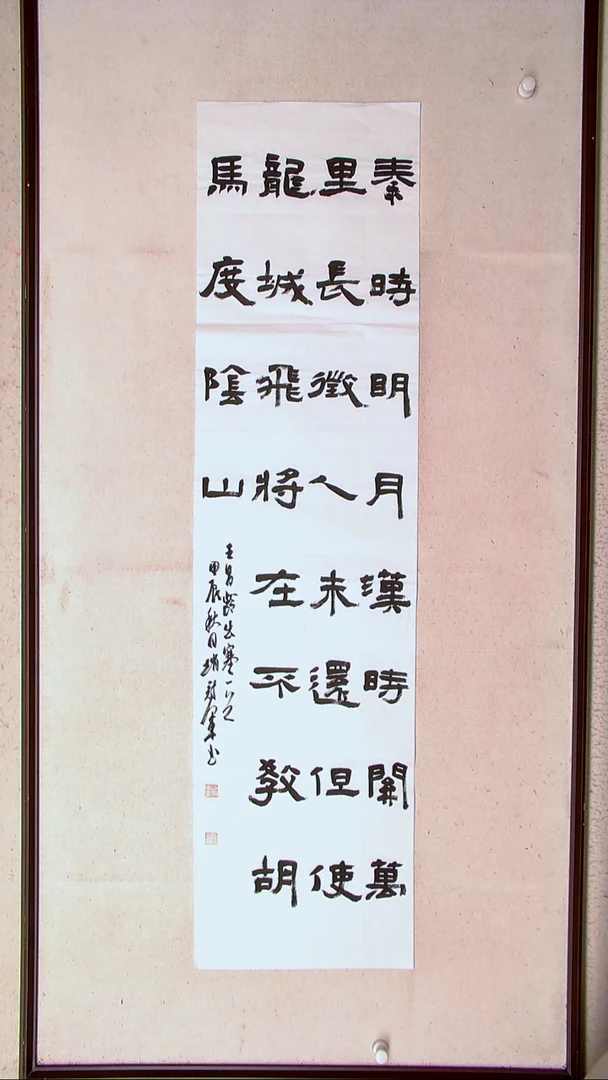 秦時明月漢時關萬
里長徵人未還但使
龍城飛將在不教胡
馬度陰山
王昌齡出塞
甲辰秋日